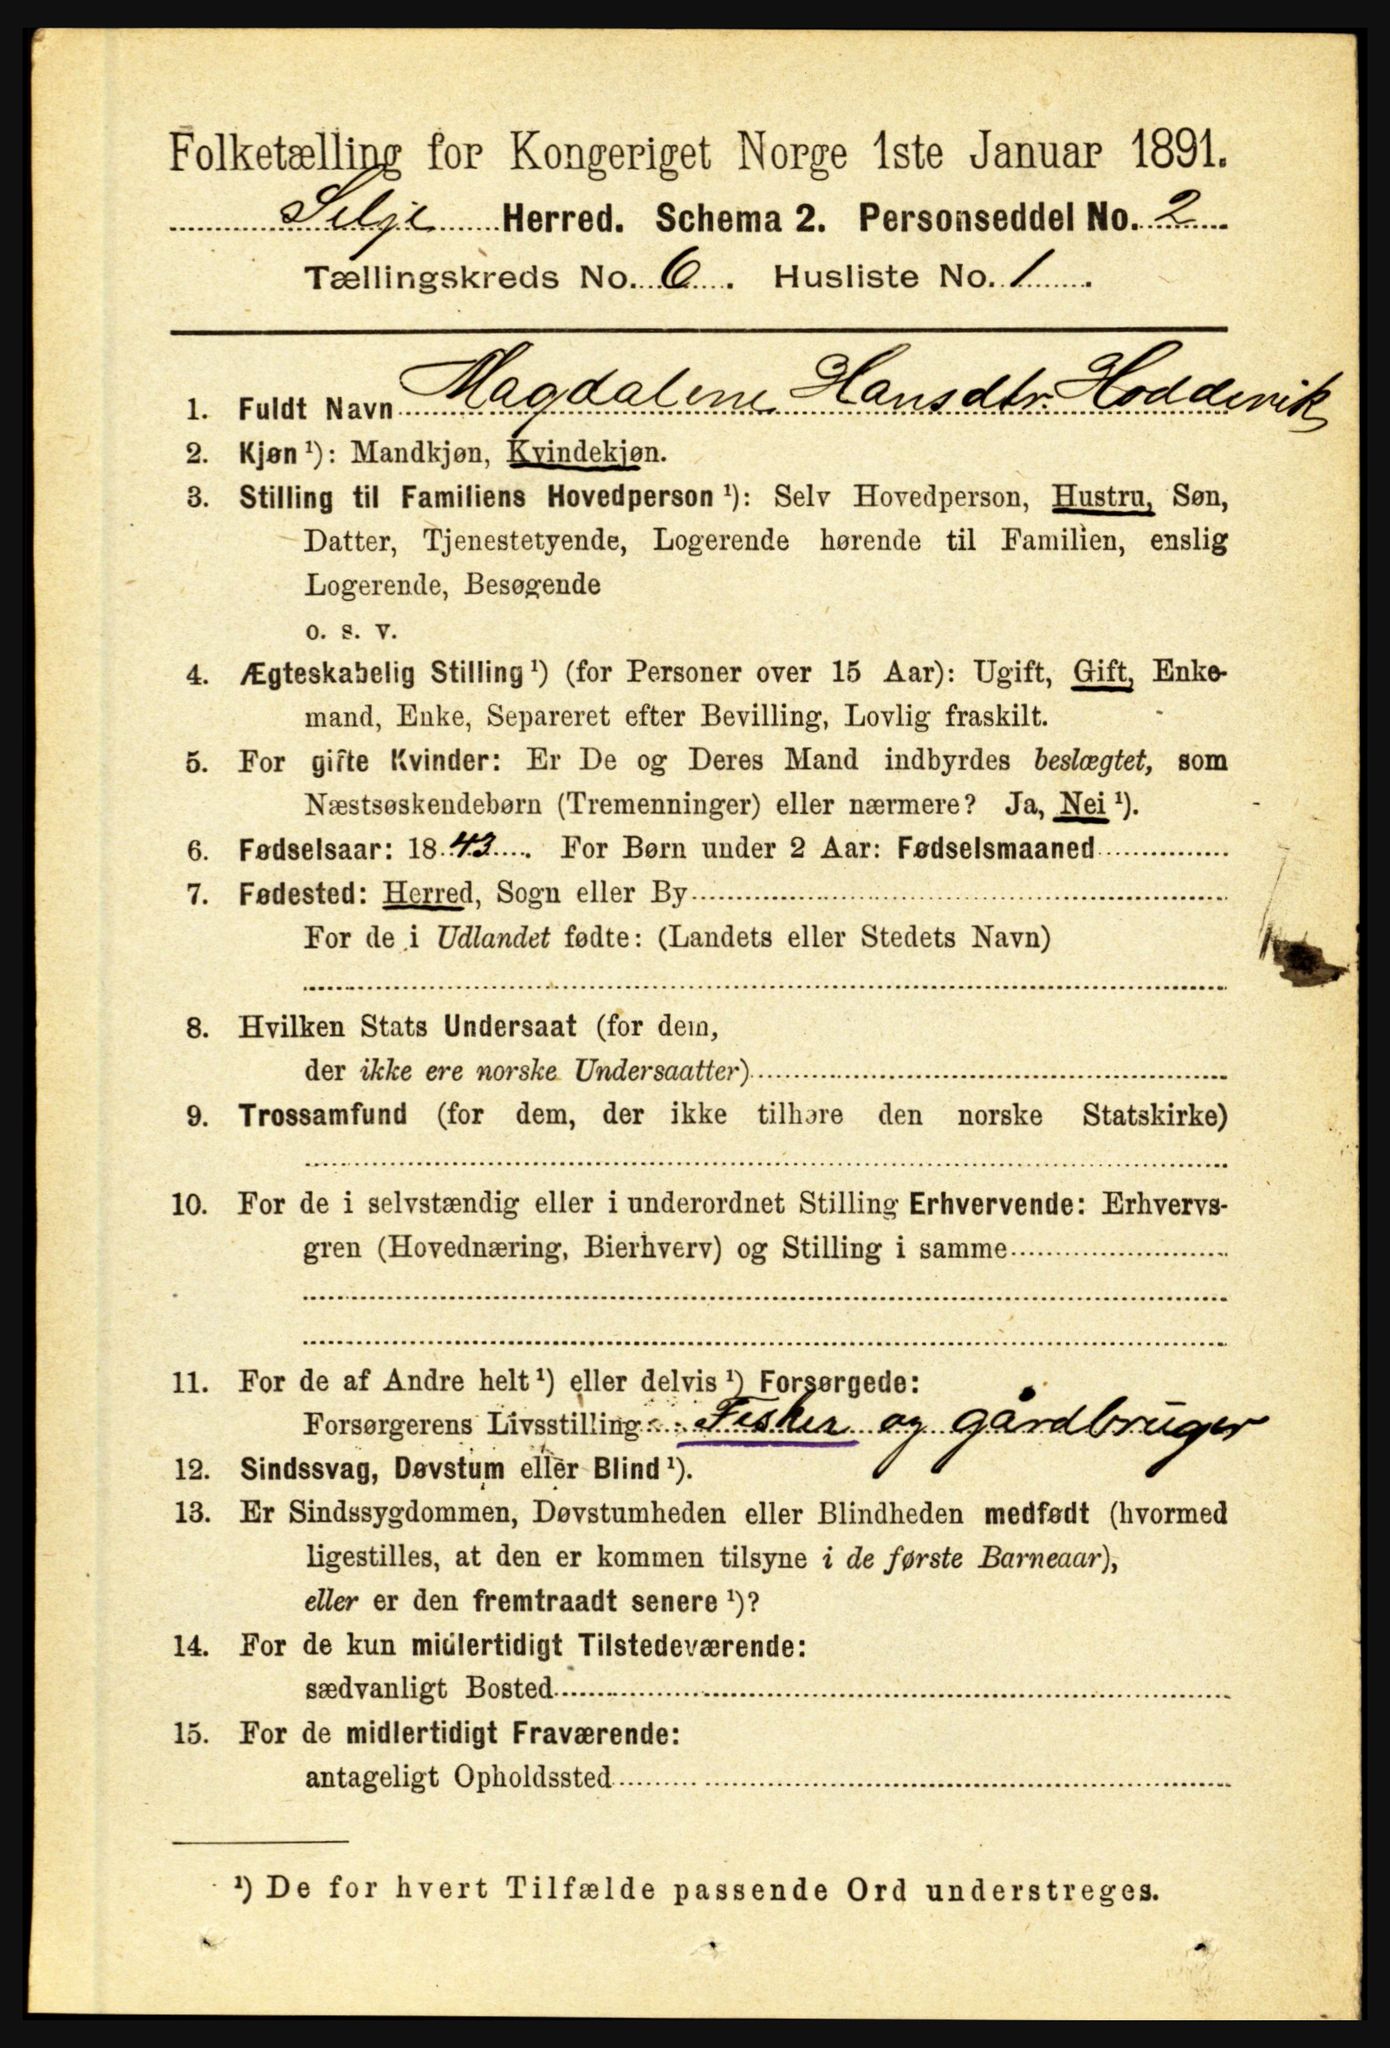 Folketælling for Kongeriget Norge 1ste Januar 1891.
Selje Herred. Schema 2. Personseddel No. 2
Tællingskreds No. 6. Husliste No. 1.
1. Fuldt Navn Magdalene Hansdtr. Hoddevik
2. Kjøn ¹): Mandkjøn, Kvindekjøn.
3. Stilling til Familiens Hovedperson ¹): Selv Hovedperson, Hustru, Søn,
Datter, Tjenestetyende, Logerende hørende til Familien, enslig
Logerende, Besøgende
o. s. v.
4. Ægteskabelig Stilling ¹) (for Personer over 15 Aar): Ugift, Gift, Enke-
mand, Enke, Separeret efter Bevilling, Lovlig fraskilt.
5. For gifte Kvinder: Er De og Deres Mand indbyrdes beslægtet, som
Næstsøskendebørn (Tremenninger) eller nærmere? Ja, Nei ¹).
6. Fødselsaar: 1843. For Børn under 2 Aar: Fødselsmaaned
7. Fødested: Herred, Sogn eller By
For de i Udlandet fødte: (Landets eller Stedets Navn)
8. Hvilken Stats Undersaat (for dem,
der ikke ere norske Undersaatter)
9. Trossamfund (for dem, der ikke tilhøre den norske Statskirke)
10. For de i selvstændig eller i underordnet Stilling Erhvervende: Erhvervs-
gren (Hovednæring, Bierhverv) og Stilling i samme
11. For de af Andre helt ¹) eller delvis ¹) Forsørgede:
Forsørgerens Livsstilling Fisker og gårdbruger
12. Sindssvag, Døvstum eller Blind ¹).
13. Er Sindssygdommen, Døvstumheden eller Blindheden medfødt (hvormed
ligestilles, at den er kommen tilsyne i de første Barneaar),
eller er den fremtraadt senere ¹)?
14. For de kun midlertidigt Tilstedeværende:
sædvanligt Bosted
15. For de midlertidigt Fraværende:
antageligt Opholdssted
¹) De for hvert Tilfælde passende Ord understreges.